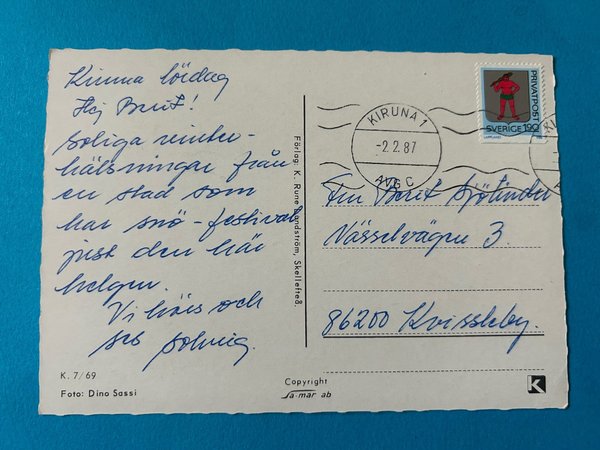 Kiruna lördag
Hej Berit!
Soliga vinter-
hälsningar från
en stad som
har snö-festival
just den här
helgen.
Vi hörs och
ses Solveig.
K. 7/69
Foto: Dino Sassi
Förlag: K. Rune Lundström, Skellefteå.
Copyright
Sa-mar ab
KIRUNA 1
-2.2.87
AVG C
PRIVATPOST
SVERIGE 190
LAPPLAND
Fru Berit Sjölinder
Nässelvägen 3.
86200 Kvissleby.
K